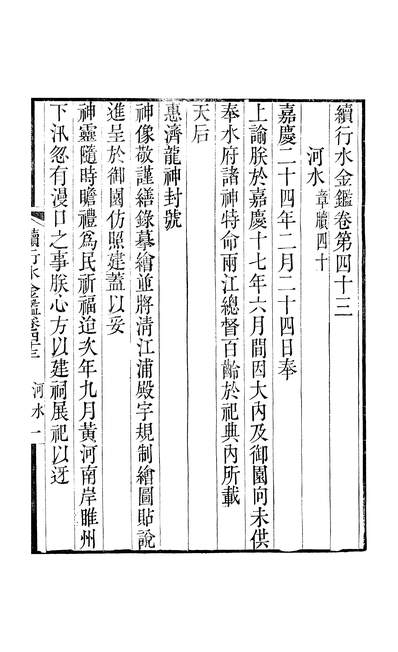 續行水金鑑卷第四十三
河水 章牘四十
嘉慶二十四年二月二十四日奉
上諭朕於嘉慶十七年六月間因大內及御園向未供
奉水府諸神特命兩江總督百齡於祀典內所載
天后
惠濟龍神封號
神像敬謹繕錄摹繪並將淸江浦殿宇規制繪圖貼說
進呈於御園仿照建蓋以妥
神靈隨時瞻禮爲民祈福迨次年九月黃河南岸睢州
下汛忽有漫口之事朕心方以建祠展祀以迓
續行水金鑑卷四十三 河水 一